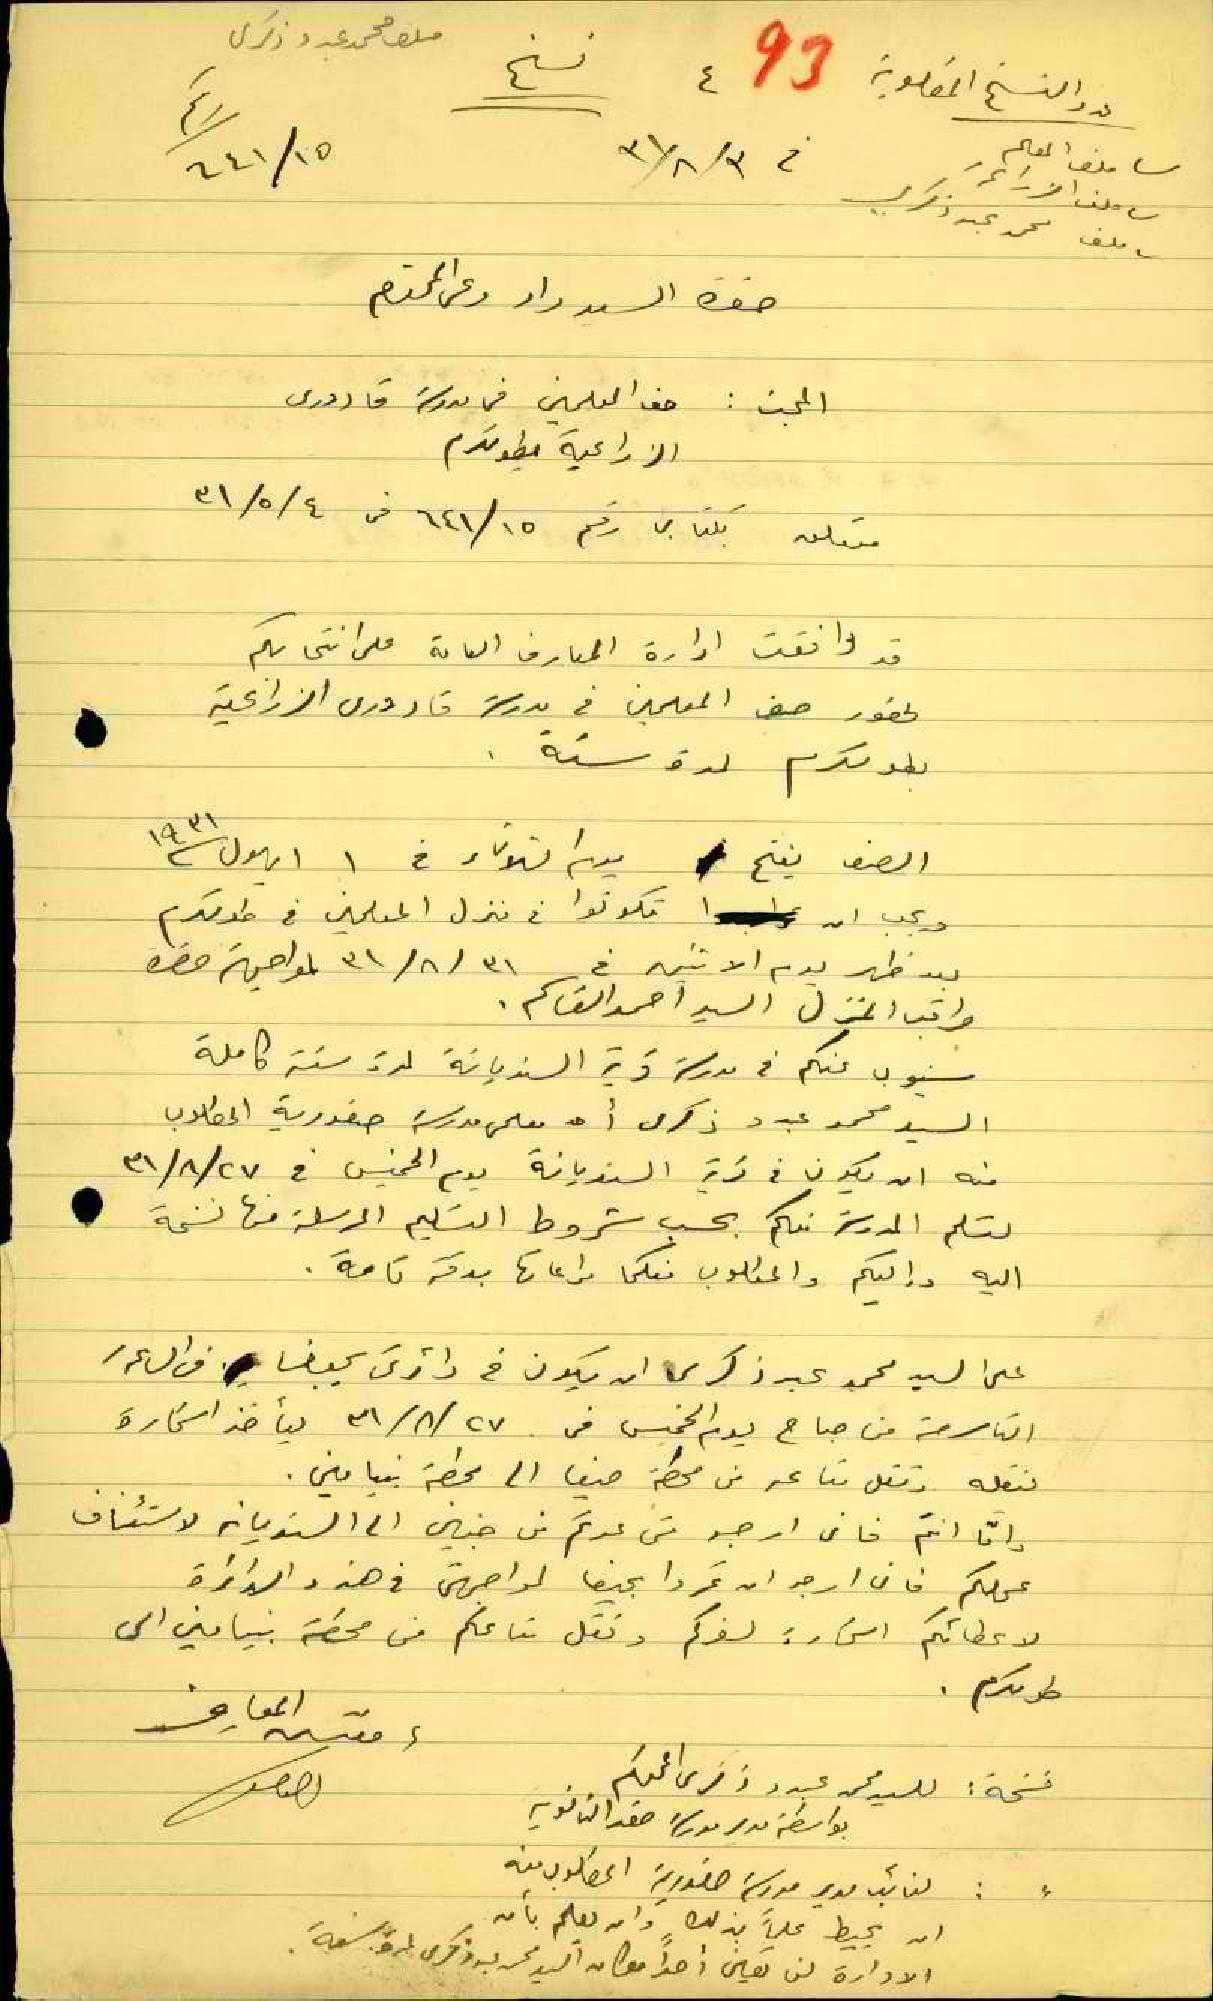 ملف محمد عبد ذكرى
عدد النسخ المطلوبة ٤ 93
نسخ
ملف المعلم
ملف الزراعة
ملف محمد عبد ذكرى
في ٣١/٨/٣
٦٤١/١٥
حضرة السيد داود المحترم
المبحث : صف المعلمين في مدرسة قادوري
الزراعية بطولكرم
متعلق بكتابي رقم ٦٤١/١٥ في ٣١/٥/٤
قد وافقت ادارة المعارف العامة على انتخابكم
لحضور صف المعلمين في مدرسة قادوري الزراعية
بطولكرم لمدة سنة .
الصف يفتح يوم الثلاثاء في ١ ايلول ١٩٣١
ويجب ان تكونوا في منزل المعلمين في طولكرم
بعد ظهر يوم الاثنين في ٣١/٨/٣١ لمواجهة حضرة
مراقب المنزل السيد احمد القاسم .
سينوب عنكم في مدرسة قرية السنديانة لمدة سنة كاملة
السيد محمد عبد ذكرى أحد معلمي مدرسة صفورية المطلوب
منه ان يكون في قرية السنديانة يوم الخميس في ٣١/٨/٢٧
لتسلم المدرسة منكم بحسب شروط التسليم المرسلة منها نسخة
اليه واليكم والمطلوب منكما مراعاتها بدقة تامة .
على السيد محمد عبد ذكرى ان يكون في دائرتي بحيفا في الساعة
التاسعة من صباح يوم الخميس في ٣١/٨/٢٧ ليأخذ استمارة
لنقله ونقل متاعه من محطة حيفا الى محطة بنيامين .
وامّا انتم فاني ارجو متى عدتم من جنين الى السنديانة لاستئناف
عملكم فاني ارجو ان تمروا بحيفا لمواجهتي في هذه الدائرة
لاعطائكم استمارة لسفركم ونقل متاعكم من محطة بنيامين الى
طولكرم .
ء مفتش المعارف
نسخة : للسيد محمد عبد ذكرى المحترم
بواسطة مدير مدرسة صفد الثانوية
ء : لنائب مدير مدرسة صفورية المطلوب منه
ان يحيط علماً بذلك وان يعلم بأن
الادارة لن تعين أحداً مكان السيد محمد عبد ذكرى لمدة سنة .